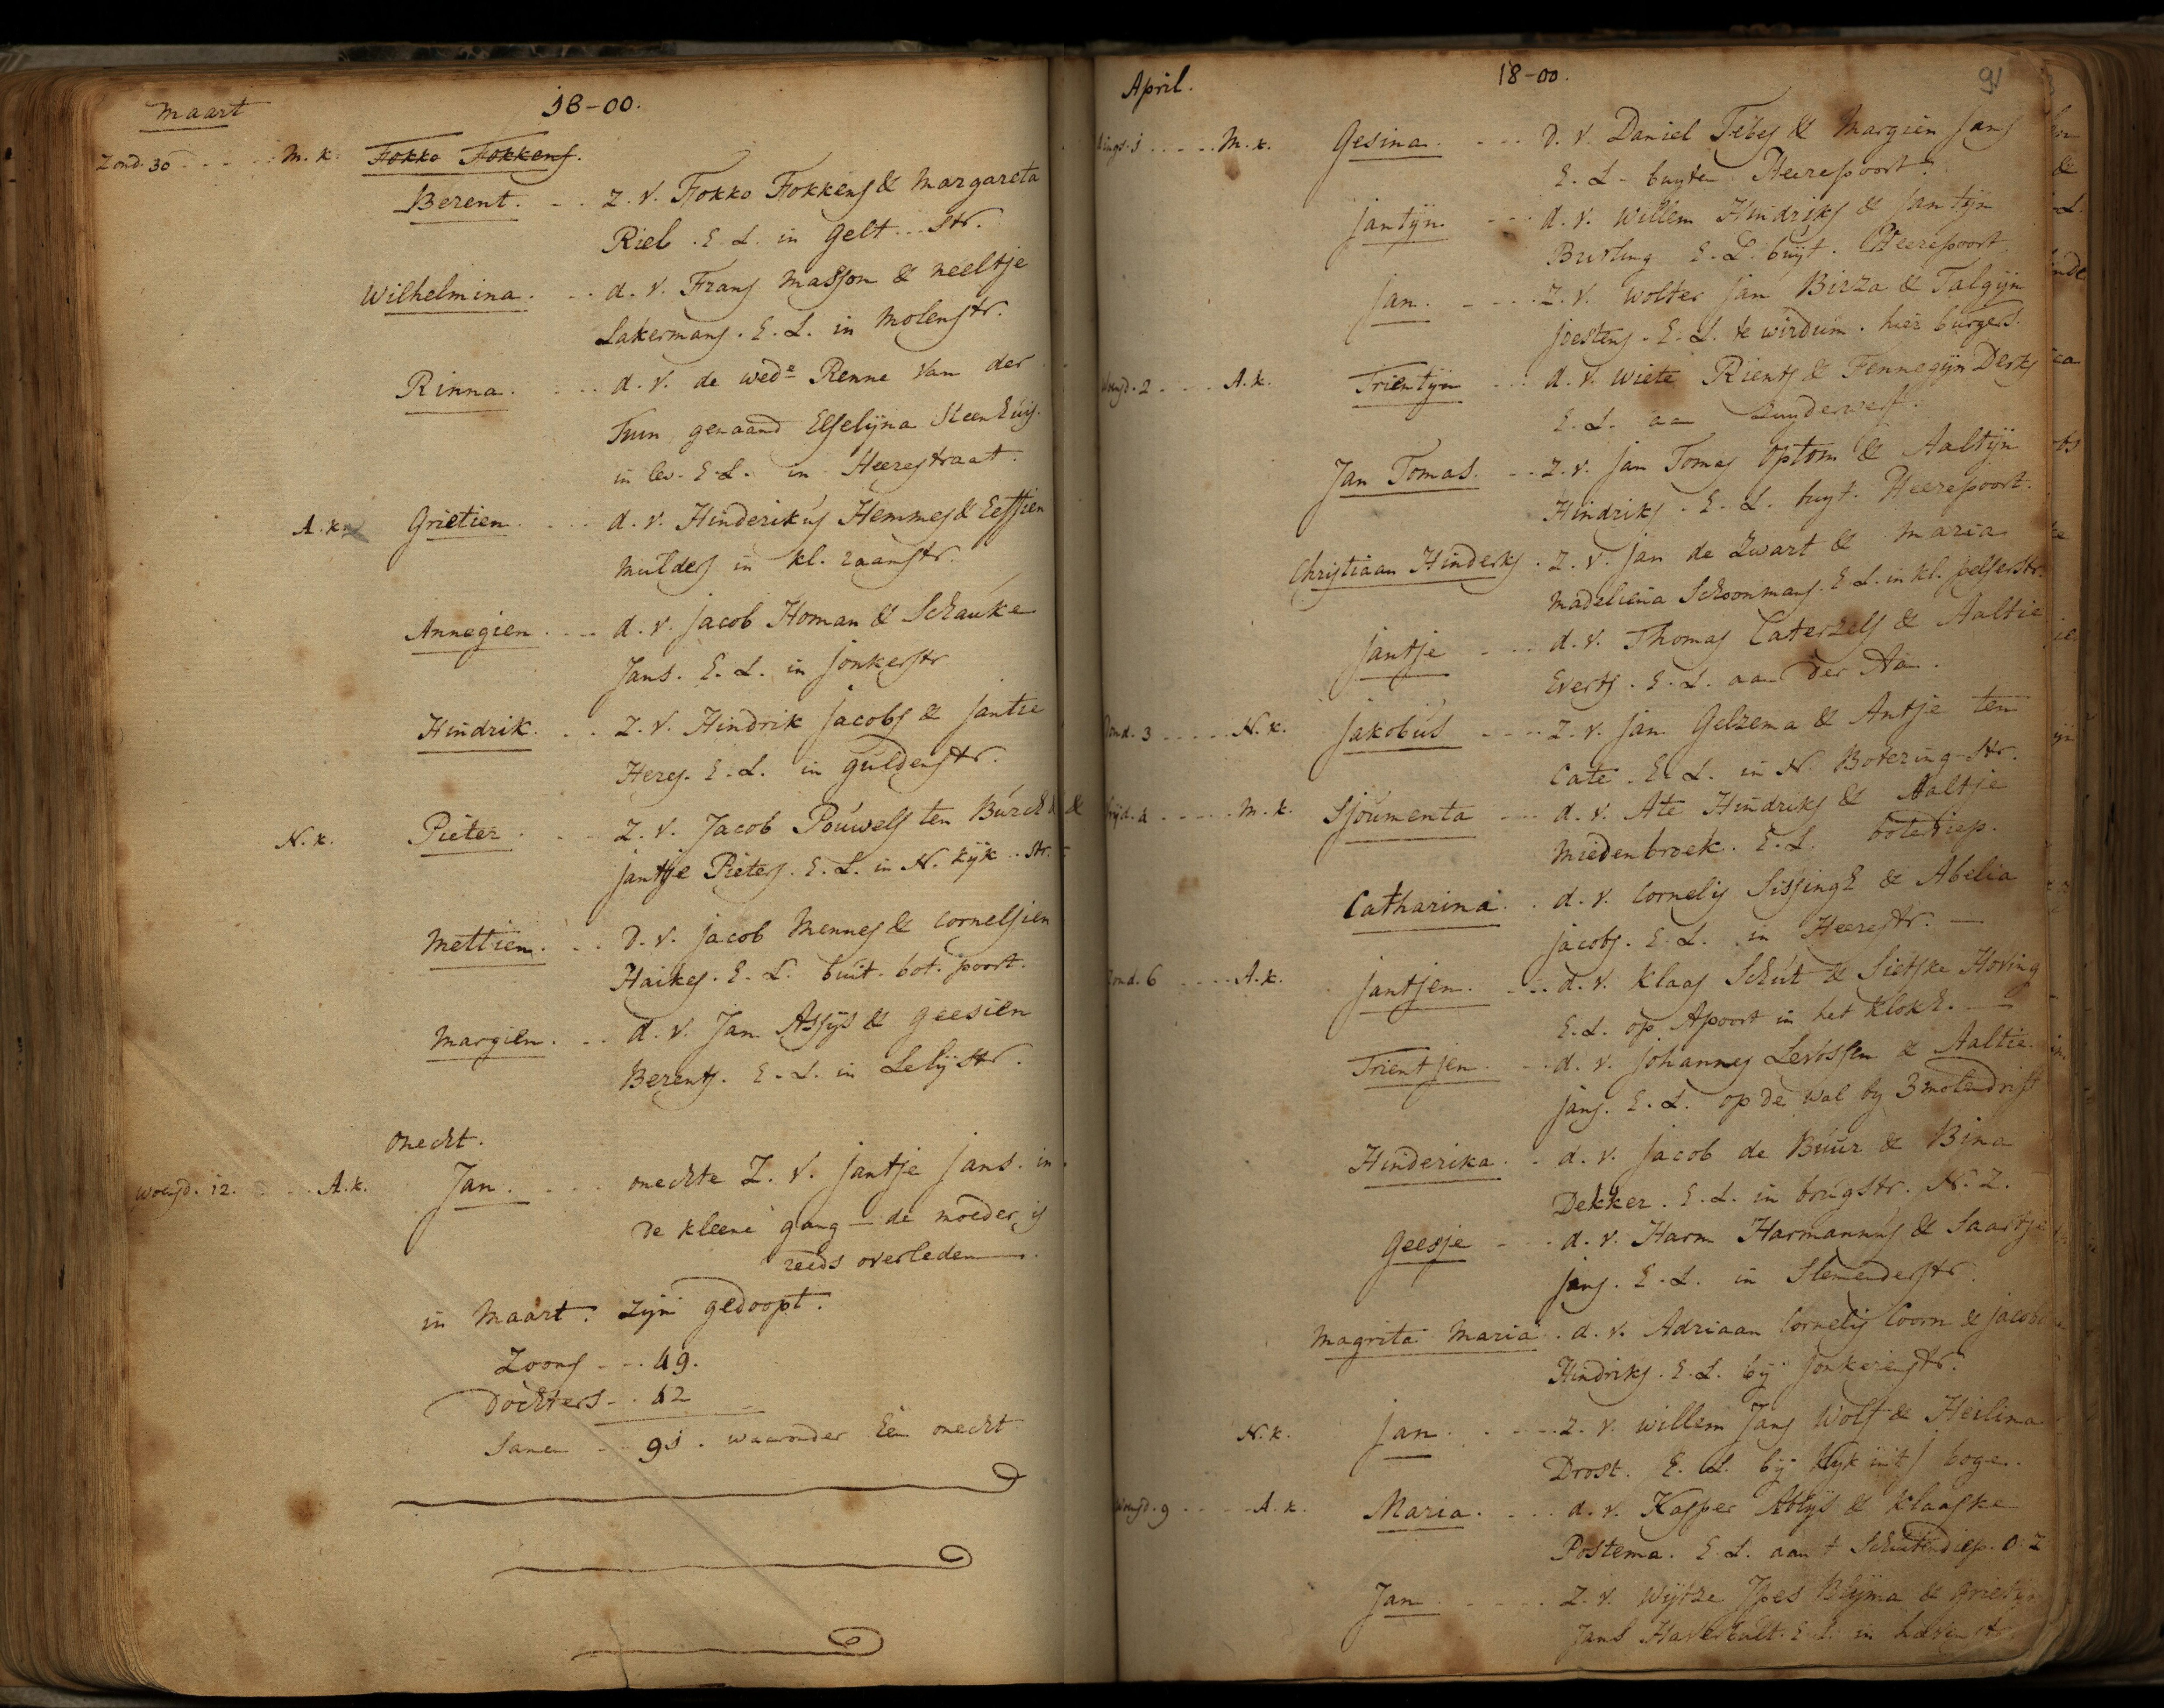 Maart 18-00.
Zond. 30 - - - - M. k. Fokko Fokkens.
Berent. - . Z. V. Fokko Fokkens & Margareta
Riel. E. L. in Gelt... str.
Wilhelmina. - . d. V. Frans Masson & Neeltje
Lakermans. E. L. in Molenstr.
Rinna. . . . d. V. de wede Renne Van der
Tuin genaamd Elselijna Steenhuis.
in lev. E. L. in Heerestraat.
A. k. Grietien. . . . d. V. Hinderikus Hemmes & Eeffien
Mulders in kl. raamstr.
Annegien. . . . d. V. Jacob Homan & Schauke
Jans. E. L. in Jonkerstr.
Hindrik. . . Z. V. Hindrik Jacobs & Jantie
Heres. E. L. in Guldenstr.
N. k. Pieter. . . Z. V. Jacob Pouwels ten Burch &
Jantje Pieters. E. L. in N. Kijk . . str.
Mettien. . . D. V. Jacob Mennes & Cornelsien
Haikes. E. L. buit. bot. poort.
Margien. . . d. V. Jan Assijs & Geesien
Berents. E. L. in Lelijstr.
onecht.
Woensd. 12. . . A. k. Jan. . . . onechte Z. V. Jantje Jans. in
de kleene gang — de moeder is
reeds overleden.
in Maart. zijn gedoopt.
Zoons - - 49.
Dochters - - 42
Samen - - 91. waaronder Een onecht
April. 18-00. 91
Dings. 1 . . . . M. k. Gesina. - - - D. V. Daniel Tebes & Margien Jans
E. L. buyten Heerepoort.
Jantijn. - - - d. V. Willem Hindriks & Jantijn
E. L. buyt. Heerepoort
Jan. - - - Z. V. Wolter Jan Birza & Talgijn
Joestens. E. L. te Wirdum. hier burgers.
Woensd. 2 . . . A. k. Trientijn - - d. V. Wiete Rients & Fennegijn Derks
E. L. aan Zuyderwerf.
Jan Tomas. - - Z. V. Jan Tomas Optom & Aaltijn
Hindriks. E. L. buyt. Heerepoort.
Christiaan Hinderks. Z. V. Jan de Zwart & Maria
Madeliena Schoonmans. E. L. in kl. pelserstr.
Jantje - - - d. V. Thomas Caterzels & Aaltie
Everts. E. L. aan der Aa.
Dond. 3 . . . . N. k. Jakobus - - - Z. V. Jan Gelzema & Antje ten
Cate. E. L. in N. Botering-str.
Vrijd. 4 . . . . M. k. Sjoumenta - - d. V. Ate Hindriks & Aaltje
Miedenbroek. E. L. botediep.
Catharina. . d. V. Cornelis Sissingh & Abelia
Jacobs. E. L. in Heerestr. —
Zond. 6 . . . . A. k. Jantjen. - - d. V. Klaas Schut & Sietske Hoving
E. L. op Apoort in het klokh. —
Trientjen. - - d. V. Johannes & Aaltie
Jans. E. L. op de wal by 3 molendrift
Hinderika. . d. V. Jacob de Buur & Bina
Dekker. E. L. in brugstr. N. Z.
Geesje - - d. V. Harm Harmannus & Saartje
Jans. E. L. in
Magrita Maria. . d. V. Adriaan Cornelis Coorn & Jacob
Hindriks. E. L. bij Jonkerenstr.
N. k. Jan. . - - - Z. V. Willem Jans Wolf & Heilina
Drost. E. L. bij Kijk in 't boge.
Woensd. 9 . . . A. k. Maria. . . . d. V. Kasper & Klaaske
Postema. E. L. aan t Schuitendiep. O. Z
Jan. - - - - Z. V. Wijtze Ypes Blijma & Grietijn
Jans E. L. in haven str.